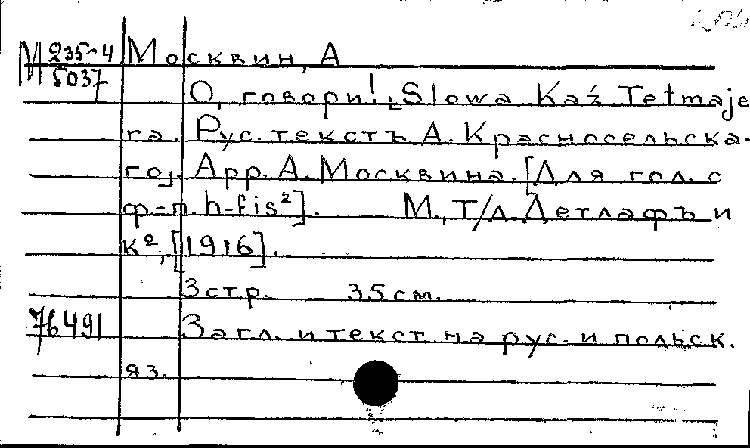 М 235-4 Москвин, А
5037
О, говори! Slowa Kaź Tetmaje
ra. Рус. текстъ А. Красносельска-
го. Арр. А. Москвина. [Для гол. с
ф-п. h-fis²]. М., Т/д. Детлафъ и
К⁰, [1916].
3 стр. 35 cm.
76491 Загл. и текст на рус. и польск.
яз.